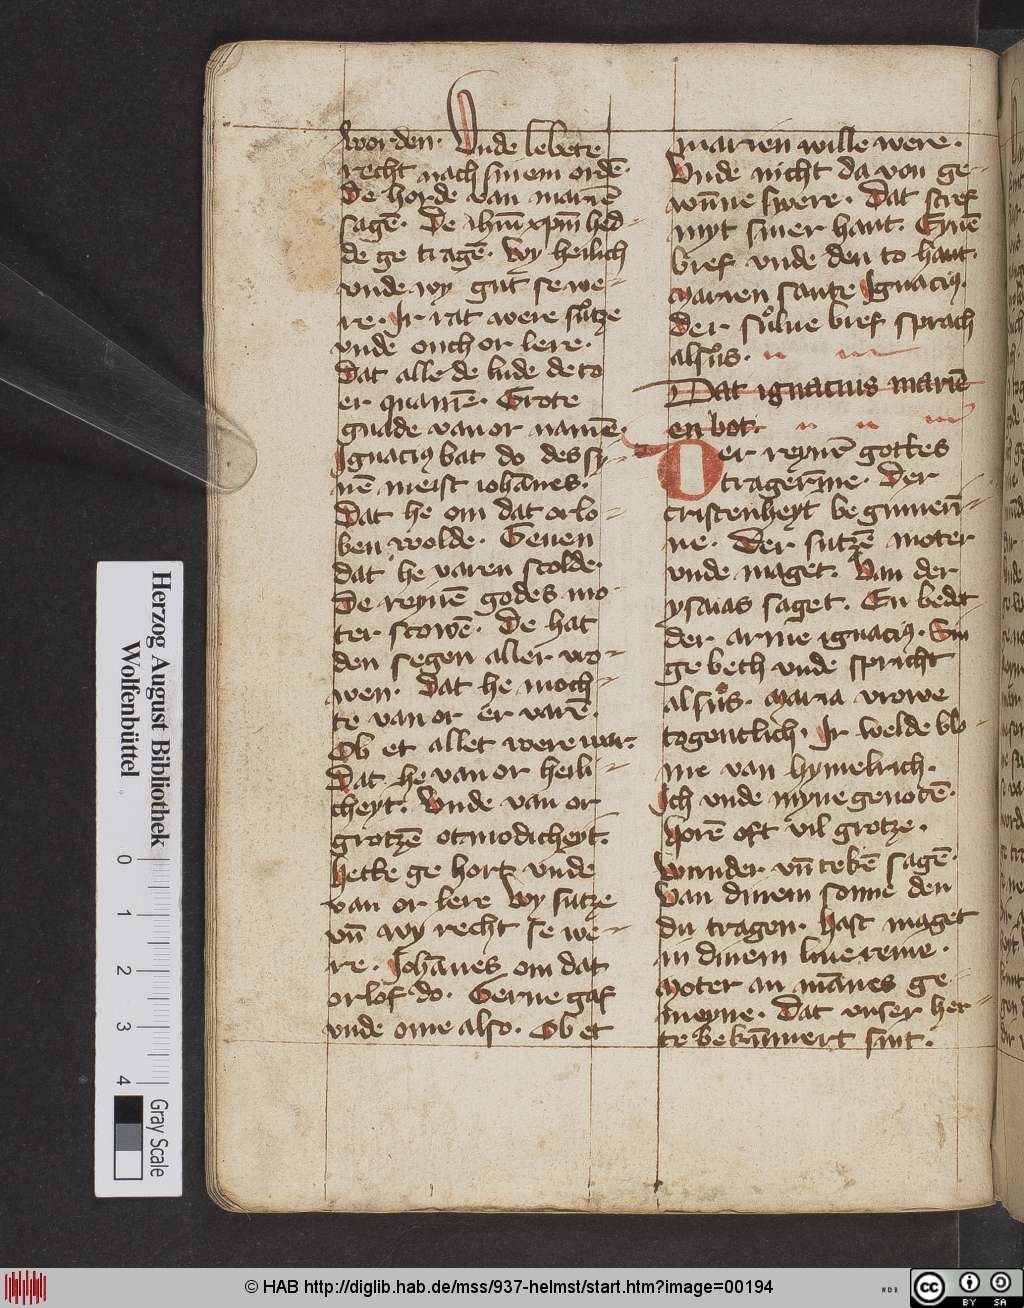 worden. Unde lebete
recht nach sinem ordē.
De horde van mariē
sagē. De ihm̄ xpm̄ hed-
de ge tragē. Wy heilich
unde wy gut se we-
re. Ir rat were sůtze
vnde ouch or lere.
Dat alle de lude de to
er quamē. Grote
gnade van or namē.
Ignacius bat do des sy-
nē meist iohānes.
Dat he om dat orlo-
ben wolde. Geuen
dat he varen scolde.
De reynē godes mo-
ter scowē. De hat
den segen aller vro-
wen. Dat he moch-
te van or er varē.
Ob et allet were war.
Dat he van or heili-
cheyt. Unde van or
grotzē otmodicheyt.
Hette ge hort vnde
van or lere wy sutze
vn̄ wy recht se we-
re. Johānes om dat
orlof do. Gerne gaf
vnde ome also. Ob et
marien wille were.
Unde nicht da von ge-
wūne swere. Dat scref
myt siner hant. Eynē
brief vnde den to hant.
Marien sante Ignacius.
Der sůlue brief sprach
alsůs.
Dat ignacius mariē
en bot.
Der reynē gottes
tragerīne. Der
cristenheyt beginnerī-
ne. Der sutzē moter
vnde maget. Van der
ysaias saget. En bedet
der arme ignacius. Sin
ge beth vnde spricht
alsůs. Maria vrowe
togentlich. Ir welde blo-
me van hymelrich.
Ich vnde myne genotē.
Horē oft vil grotze.
wunder vn̄ tekē sagē.
Van dinem sonne den
du tragen. Hast maget
in dinem liue reine.
Moter an mānes ge
meyne. Dat vnser her-
te bekūmert sint.
Herzog August Bibliothek
Wolfenbüttel
0 1 2 3 4
Gray Scale
© HAB http://diglib.hab.de/mss/937-helmst/start.htm?image=00194
WDB
cc BY SA